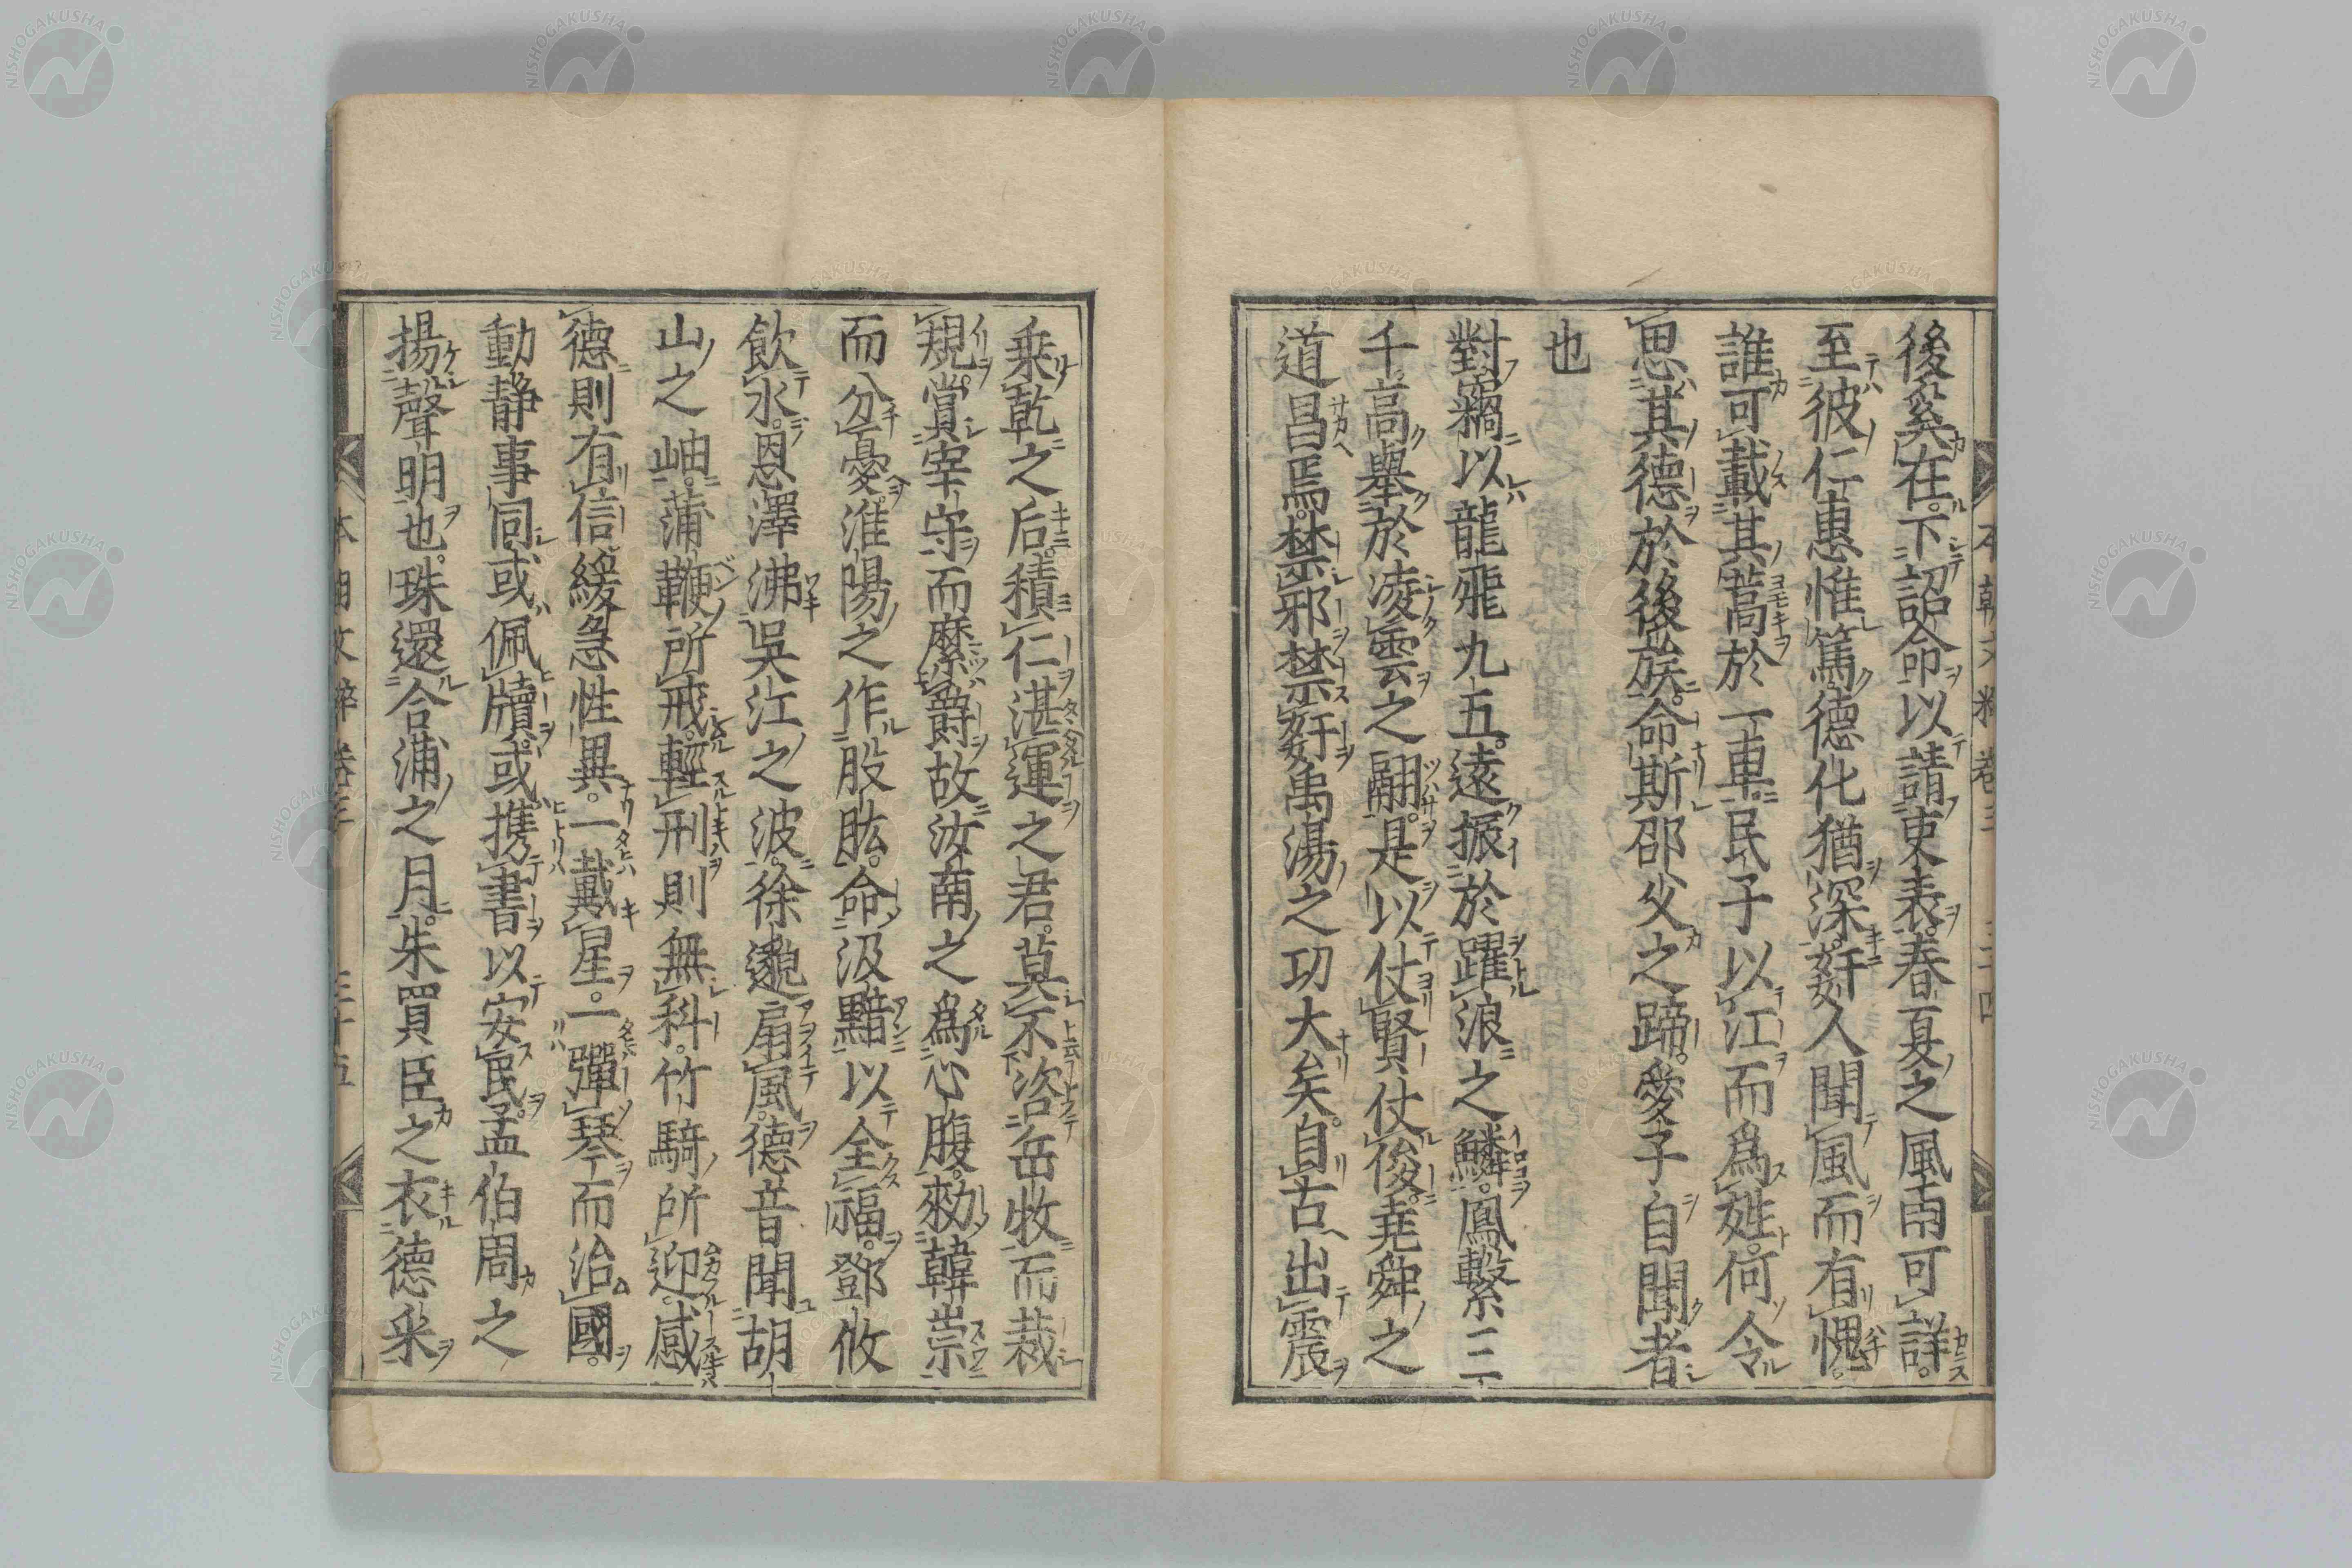 後奚在下詔命以請吏表春夏之風雨可詳
至彼仁惠惟篤德化猶深姧人聞風而有愧
誰可載其蒿於一車民子以江而爲姓何令
思其德於後葉族命斯邵父之蹄愛子自聞者
也
對竊以龍飛九五遠振於躍浪之鱗鳳繫三
千高舉於凌雲之翮是以仗賢仗俊堯舜之
道昌焉禁邪禁姧禹湯之功大矣自古出震
乗乾之后積仁湛運之君莫不洛岳牧而裁
規賞宰守而縻爵故汝南之爲心腹勑韓崇
而分憂淮陽之作股肱命汲黯以全福鄧攸
飲水恩澤沸吳江之波徐邈扇風德音聞胡
山之岫蒲鞭所戒輕刑則無科竹騎所迎感
德則有信緩急性異一戴星一彈琴而治國
動静事同或佩牘或携書以安民孟伯周之
揚聲明也珠還合浦之月朱買臣之衣德釆
本朝文粹卷三 三十四
本朝文粹卷三 三十五
NISHOGAKUSHA